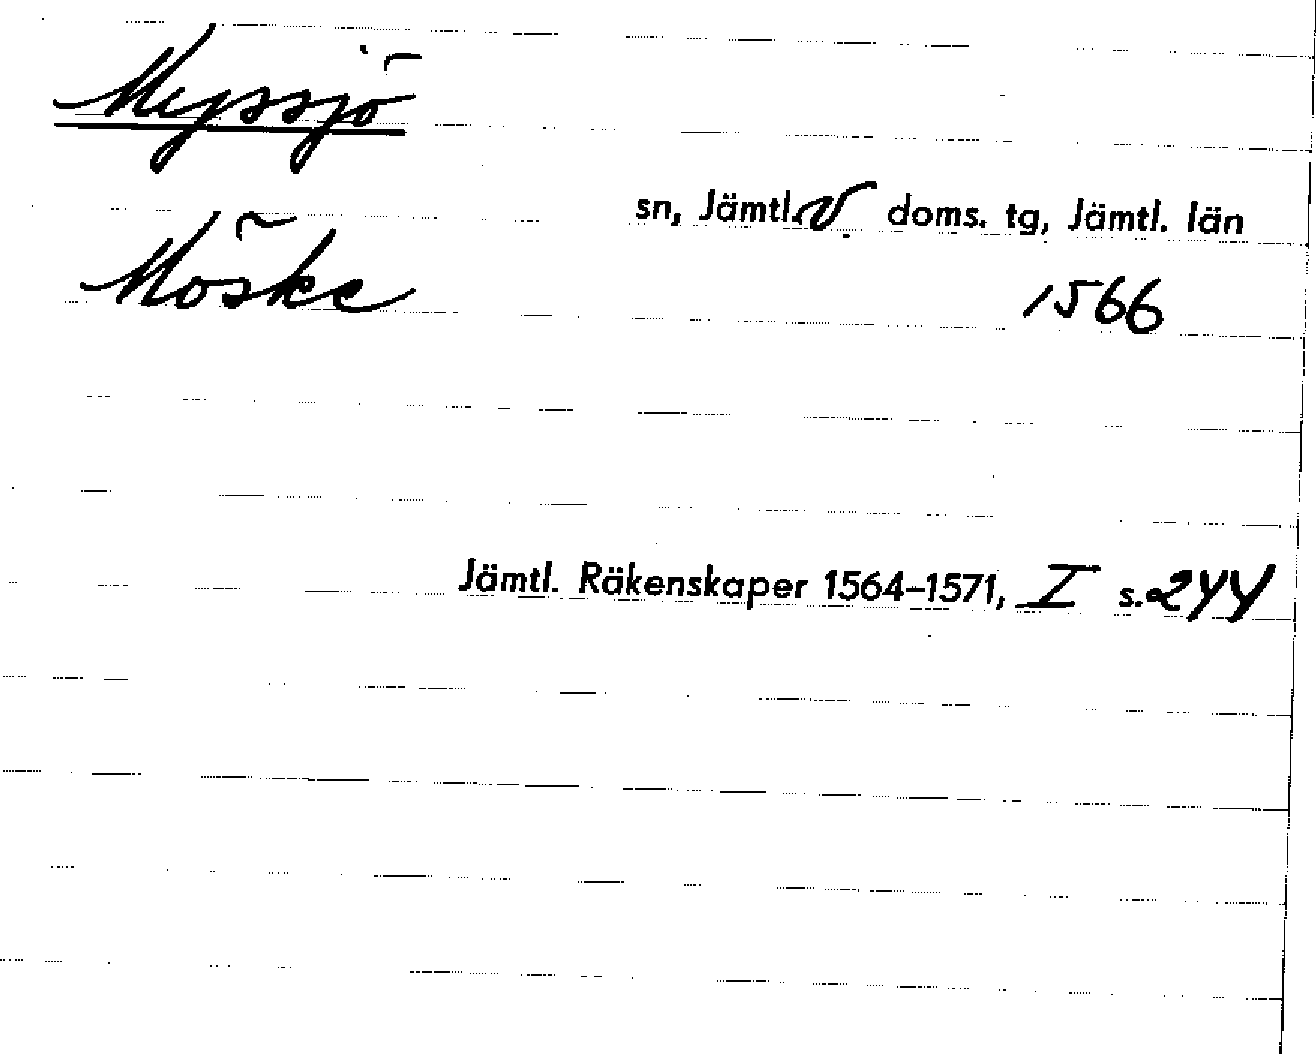 Myssjö
sn, Jämtl. V. doms. tg, Jämtl. län
Möske
1566
Jämtl. Räkenskaper 1564–1571, I s. 244